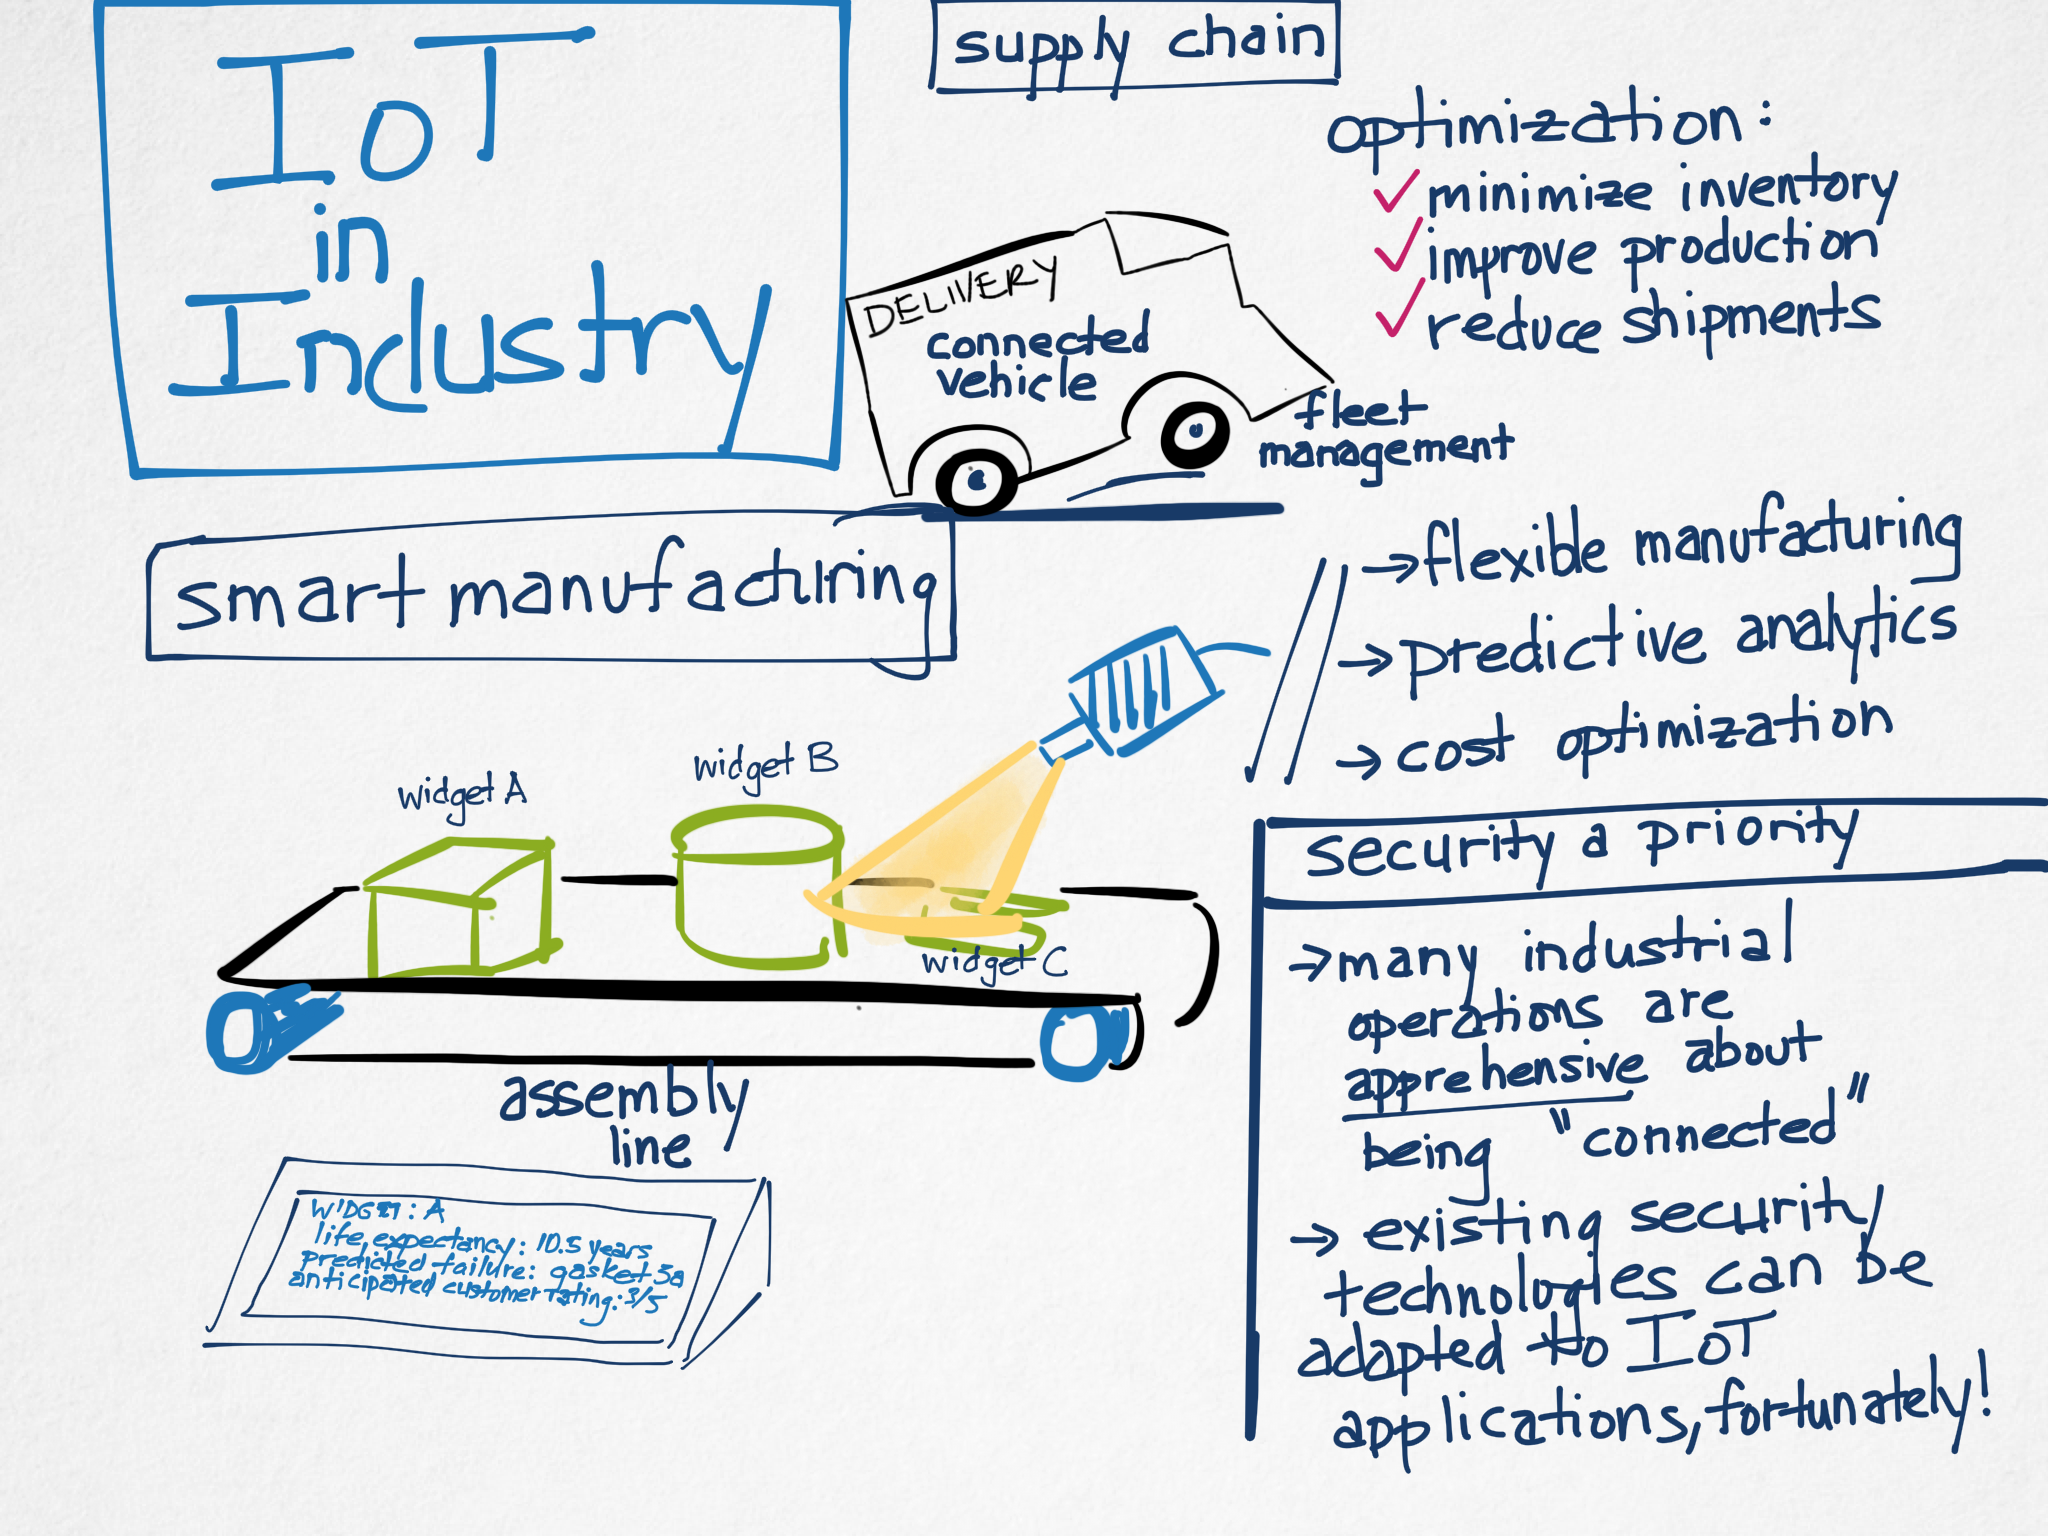 IoT
in
Industry
supply chain
optimization:
✓ minimize inventory
✓ improve production
✓ reduce shipments
DELIVERY
connected
vehicle
fleet
management
smart manufacturing
→ flexible manufacturing
→ predictive analytics
→ cost optimization
widget A
widget B
widget C
assembly
line
WIDGET: A
life expectancy: 10.5 years
predicted failure: gasket 3a
anticipated customer rating: 3/5
security a priority
→ many industrial
operations are
apprehensive about
being "connected"
→ existing security
technologies can be
adapted to IoT
applications, fortunately!